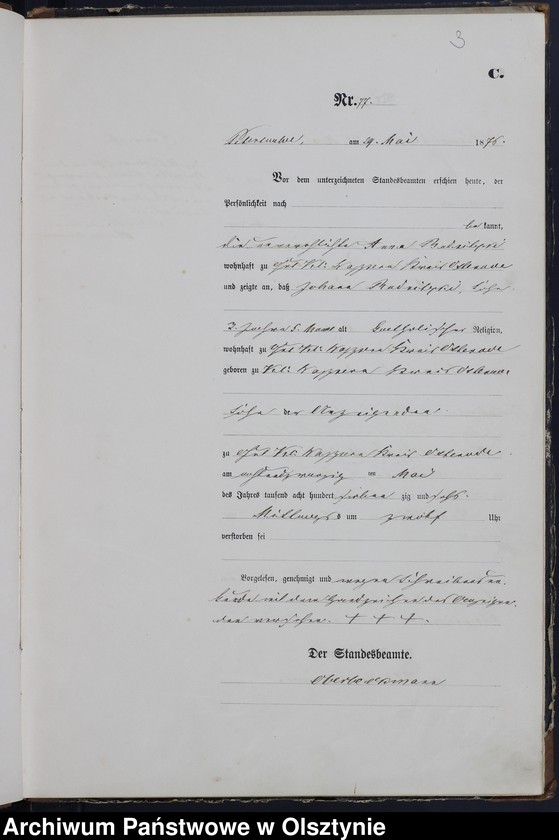 3
C.
Nr. 77.
am 29. Mai 1876.
Vor dem unterzeichneten Standesbeamten erschien heute, der
Persönlichkeit nach
bekannt,
die unverehelichte Anna
wohnhaft zu Gut Kl: Kreis Osterode
und zeigte an, daß Johann
3 Jahre 5 Monat alt katholischer Religion,
wohnhaft zu Gut Kl: Kreis Osterode
geboren zu Kl: Kreis Osterode
Sohn der Anzeigenden
zu Gut Kl: Kreis Osterode
am achtundzwanzig ten Mai
des Jahres tausend acht hundert sieben zig und sechs
Mittags um zwölf Uhr
verstorben sei
Vorgelesen, genehmigt und wegen Schreibensun-
kunde mit dem Handzeichen der Anzeigen-
den versehen. + + +.
Der Standesbeamte.
Archiwum Państwowe w Olsztynie